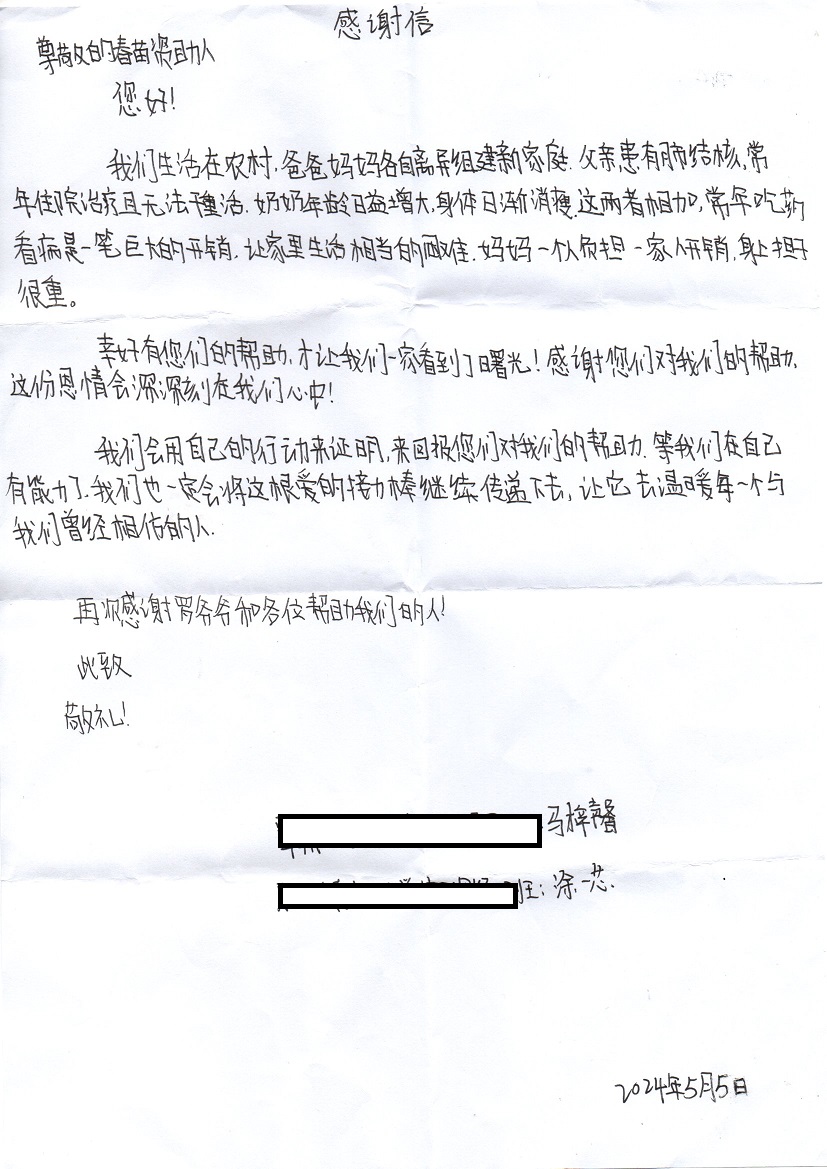 感谢信
尊敬的春苗资助人
您好!
我们生活在农村,爸爸妈妈各自离异组建新家庭.父亲患有肺结核,常
年住院治疗且无法干重活.奶奶年龄日益增大,身体日渐消瘦,这两者相加,常年吃药
看病是一笔巨大的开销.让家里生活相当的困难.妈妈一个人负担一家人开销,身上担子
很重。
幸好有您们的帮助,才让我们一家看到了曙光!感谢您们对我们的帮助,
这份恩情会深深刻在我们心中!
我们会用自己的行动来证明,来回报您们对我们的帮助.等我们在自己
有能力了.我们也一定会将这根爱的接力棒继续传递下去,让它去温暖每一个与
我们曾经相仿的人.
再次感谢罗爷爷和各位帮助我们的人!
此致
敬礼!
马梓馨
班:涂一芯.
2024年5月5日